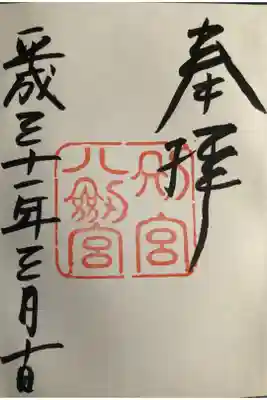 奉拝
別宮
八劔宮
平成三十一年三月十一日